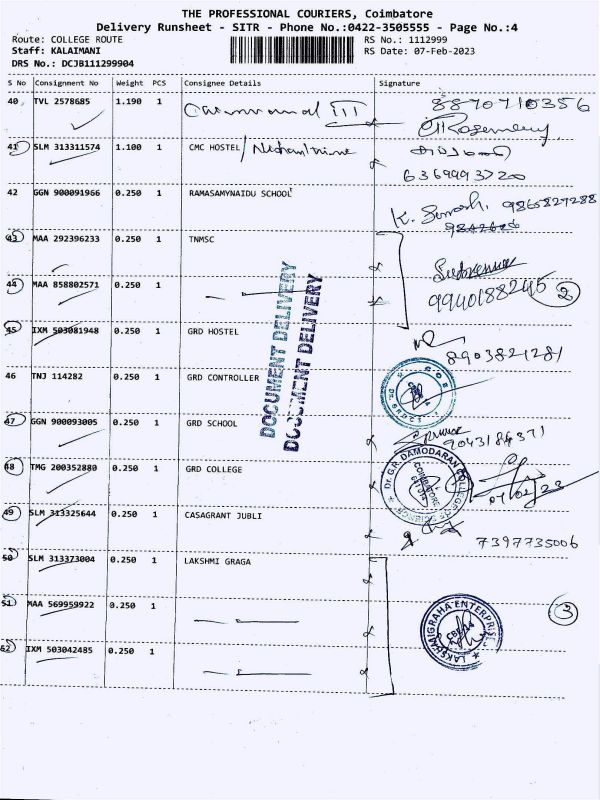 THE PROFESSIONAL COURIERS, Coimbatore
Delivery Runsheet - SITR - Phone No.:0422-3505555 - Page No.:4
Route: COLLEGE ROUTE RS No.: 1112999
Staff: KALAIMANI RS Date: 07-Feb-2023
DRS No.: DCJB111299904
S No Consignment No Weight PCS Consignee Details Signature
40 TVL 2578685 1.190 1 III 8870710356
Rosemery
41 SLM 313311574 1.100 1 CMC HOSTEL/
6369993720
42 GGN 900091966 0.250 1 RAMASAMYNAIDU SCHOOL
K. 9865827288
43 MAA 292396233 0.250 1 TNMSC
44 MAA 858802571 0.250 1 9940188245 2
DOCUMENT DELIVERY
DOCUMENT DELIVERY
45 IXM 503081948 0.250 1 GRD HOSTEL
8903821281
46 TNJ 114282 0.250 1 GRD CONTROLLER
47 GGN 900093005 0.250 1 GRD SCHOOL
9043184371
48 TMG 200352880 0.250 1 GRD COLLEGE
Dr. G.R. DAMODARAN COLLEGE
COIMBATORE
07/02/23
49 SLM 313325644 0.250 1 CASAGRANT JUBLI
7397735006
50 SLM 313373004 0.250 1 LAKSHMI GRAGA
51 MAA 569959922 0.250 1 3
LAKSHAIGRAHA ENTERPRISE
CBE-14
52 IXM 503042485 0.250 1